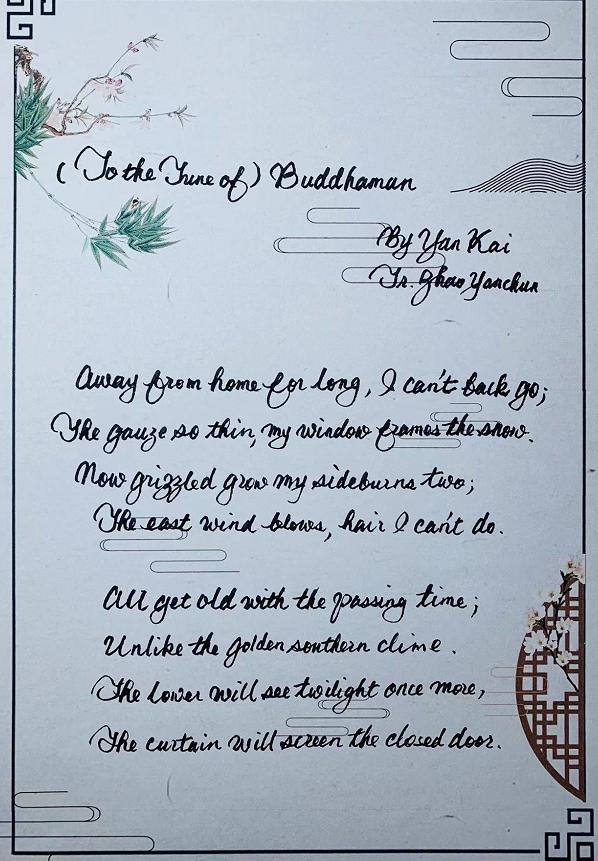 (To the Tune of) Buddhaman
By Yan Kai
Tr. Zhao Yanchun
Away from home for long, I can't back go;
The gauze so thin, my window frames the snow.
Now grizzled grow my sideburns two;
The east wind blows, hair I can't do.
All get old with the passing time;
Unlike the golden southern clime.
The lower will see twilight once more,
The curtain will screen the closed door.